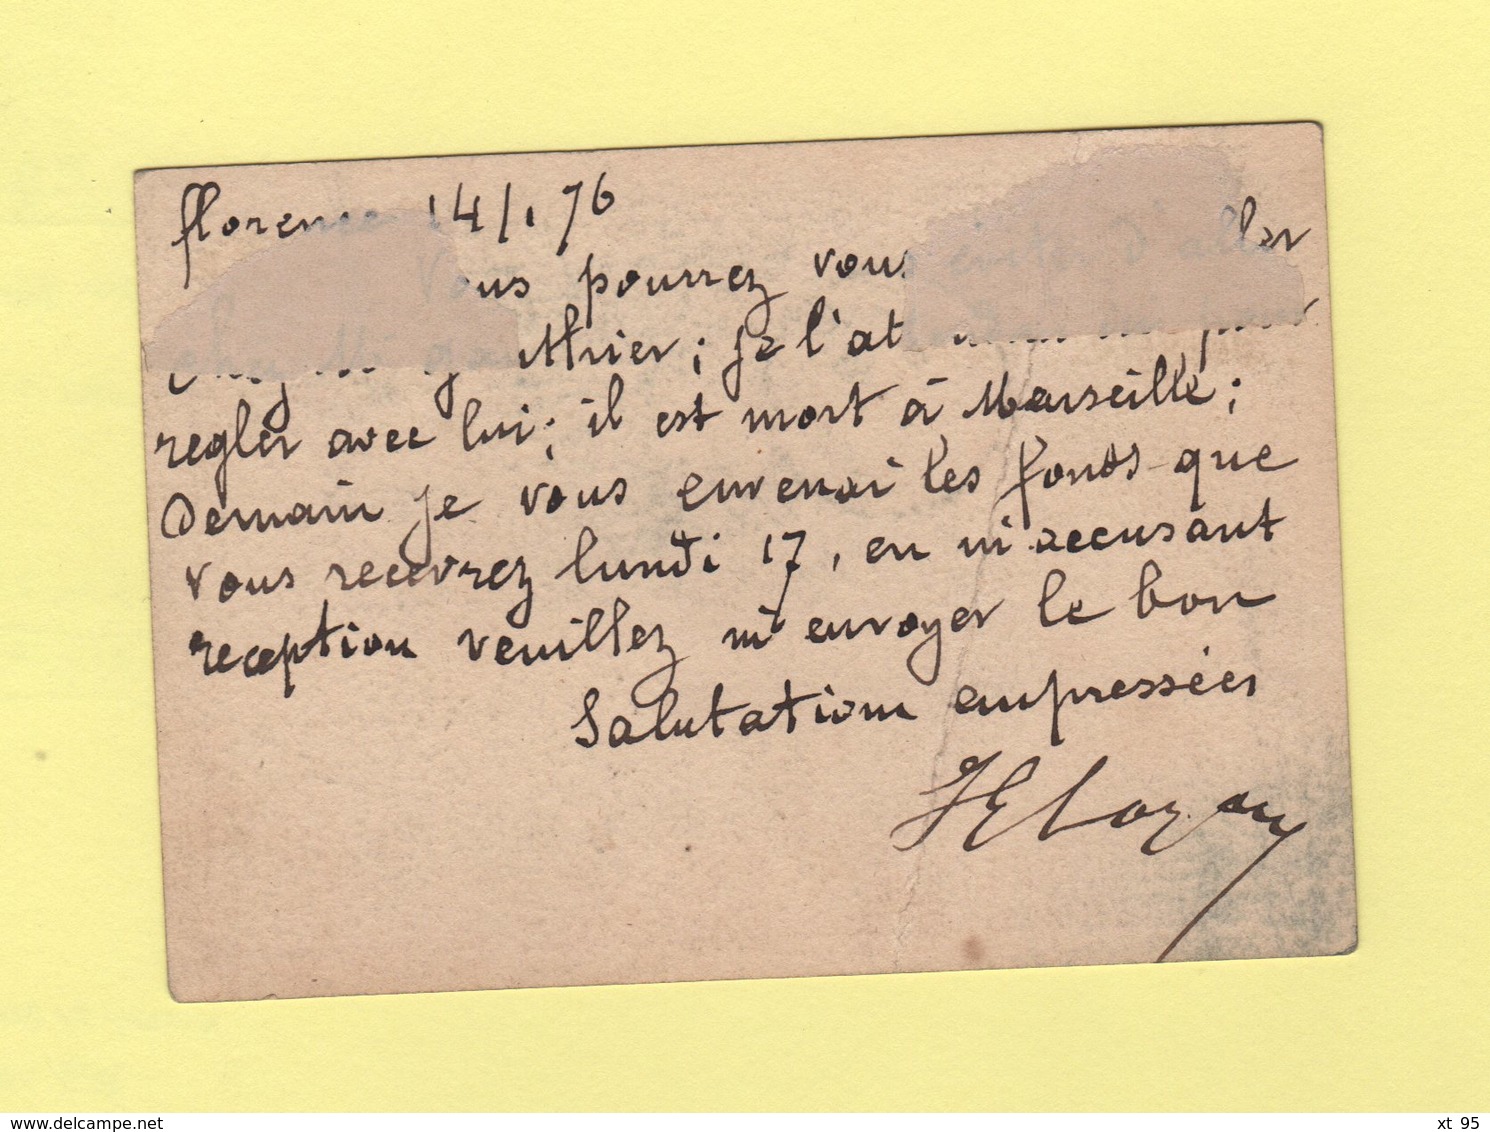 florence 14/1 76
Vous pourrez vous éviter d'aller
chez Mr ; je l'attendais pour
regler avec lui; il est mort à Marseille;
Demain je vous enverrai les fonds que
vous recevrez lundi 17, en m'accusant
reception veuillez m'envoyer le bon
Salutations empressées
delcampe.net
xt 95